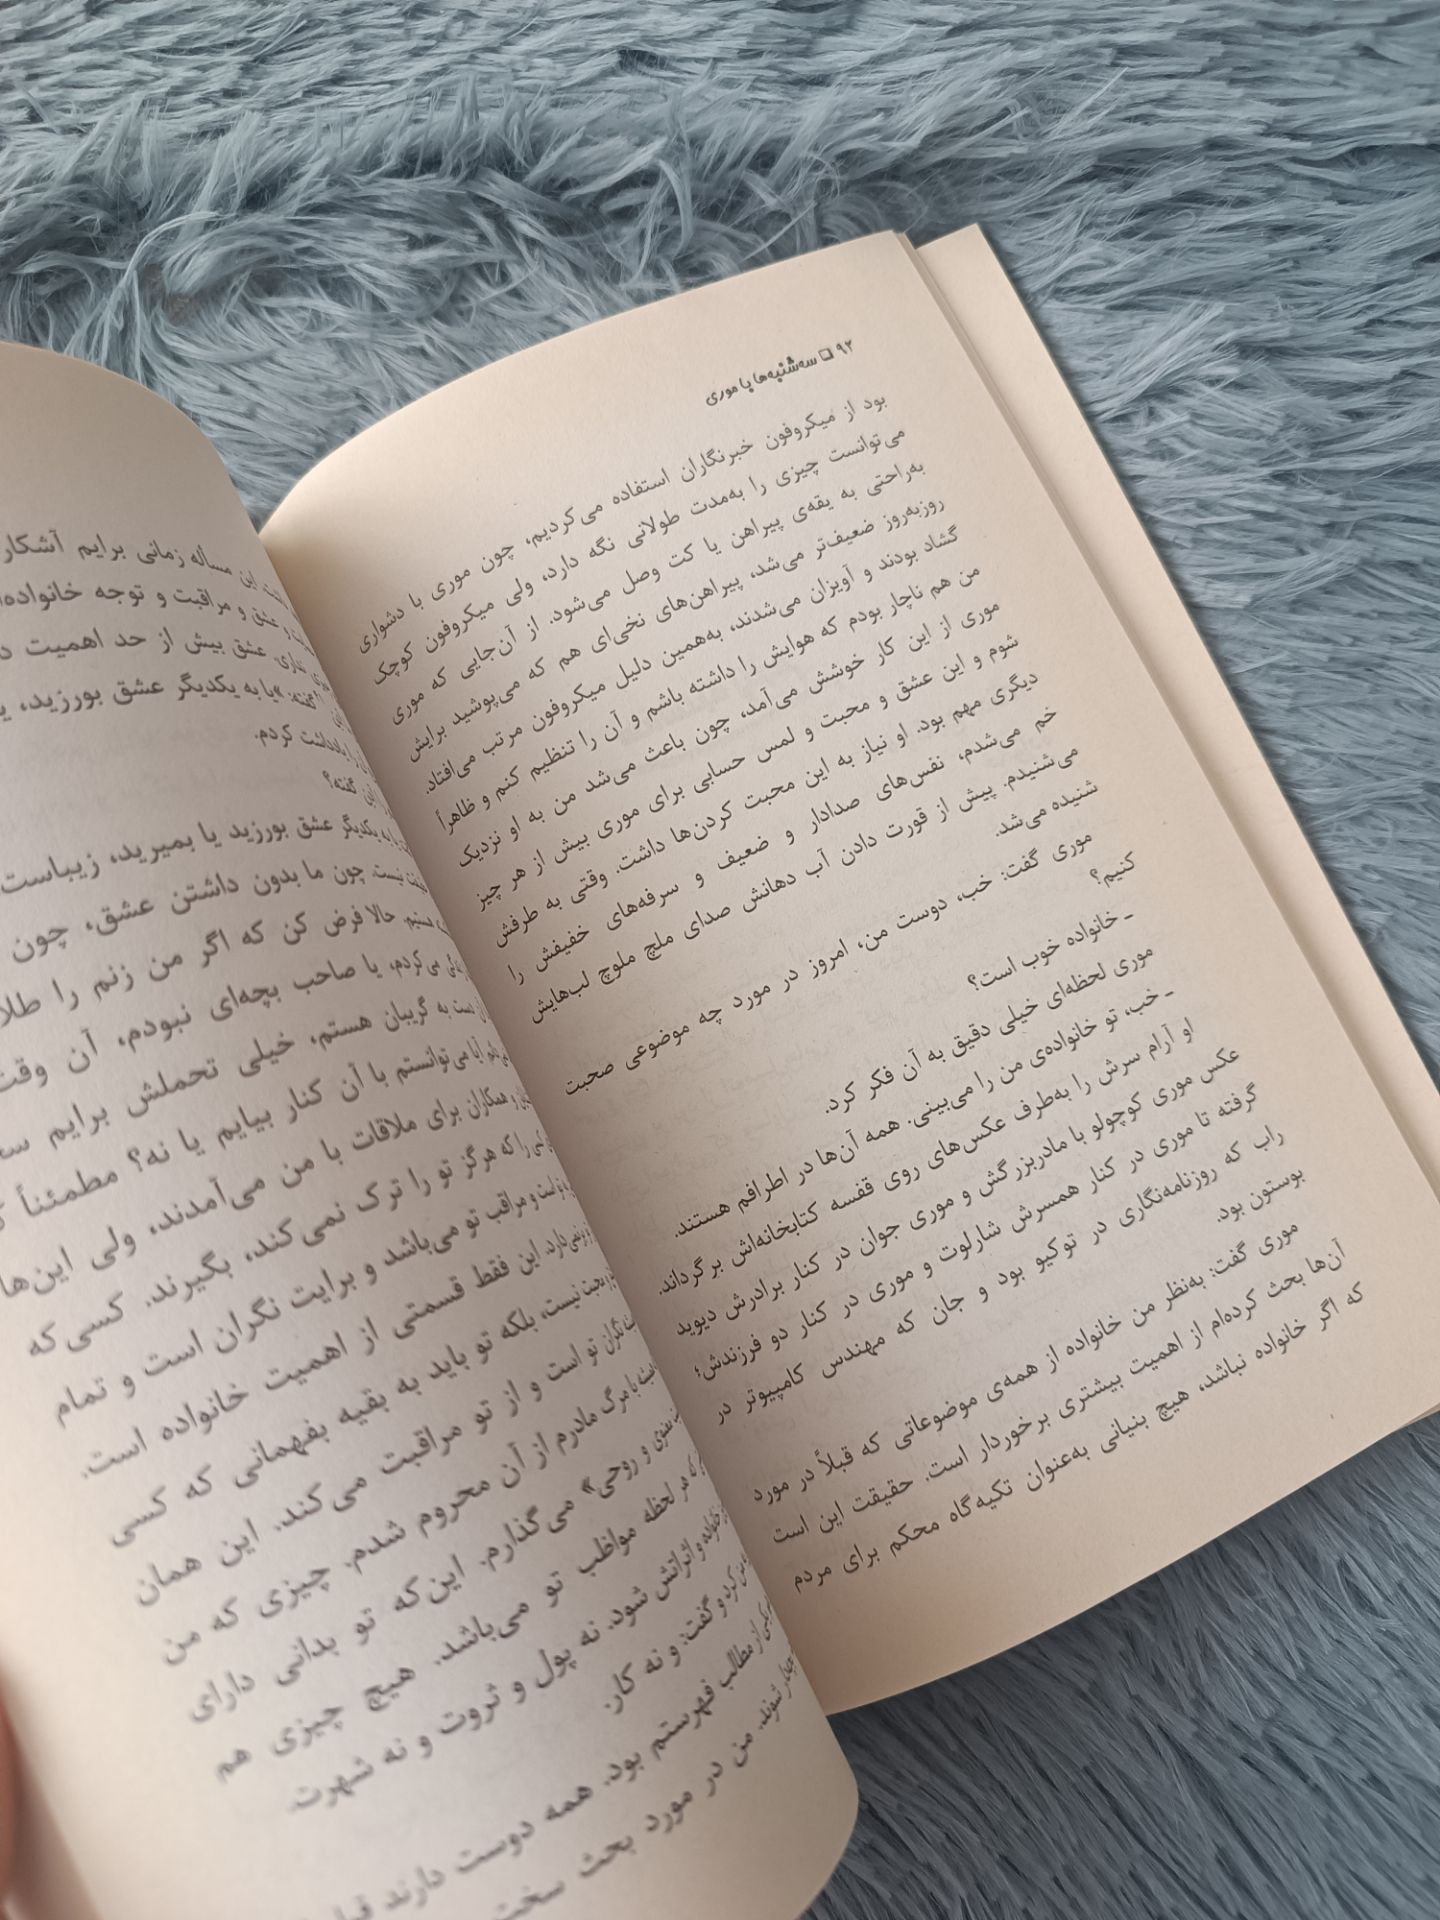 ۹۲ □ سه‌شنبه‌ها با موری
بود از میکروفون خبرنگاران استفاده می‌کردیم، چون موری با دشواری
می‌توانست چیزی را به‌مدت طولانی نگه دارد، ولی میکروفون کوچک
به‌راحتی به یقه‌ی پیراهن یا کت وصل می‌شود. از آن‌جایی که موری
روزبه‌روز ضعیف‌تر می‌شد، پیراهن‌های نخی‌ای هم که می‌پوشید برایش
گشاد بودند و آویزان می‌شدند، به‌همین دلیل میکروفون مرتب می‌افتاد.
من هم ناچار بودم که هوایش را داشته باشم و آن را تنظیم کنم و ظاهراً
موری از این کار خوشش می‌آمد، چون باعث می‌شد من به او نزدیک
شوم و این عشق و محبت و لمس حسابی برای موری بیش از هر چیز
دیگری مهم بود. او نیاز به این محبت کردن‌ها داشت. وقتی به طرفش
خم می‌شدم، نفس‌های صدادار و ضعیف و سرفه‌های خفیفش را
می‌شنیدم. پیش از قورت دادن آب دهانش صدای ملچ ملوچ لب‌هایش
شنیده می‌شد.
موری گفت: خب، دوست من، امروز در مورد چه موضوعی صحبت
کنیم؟
ـ خانواده خوب است؟
موری لحظه‌ای خیلی دقیق به آن فکر کرد.
ـ خب، تو خانواده‌ی من را می‌بینی. همه آن‌ها در اطرافم هستند.
او آرام سرش را به‌طرف عکس‌های روی قفسه کتابخانه‌اش برگرداند.
عکس موری کوچولو با مادربزرگش و موری جوان در کنار برادرش دیوید
گرفته تا موری در کنار همسرش شارلوت و موری در کنار دو فرزندش؛
راب که روزنامه‌نگاری در توکیو بود و جان که مهندس کامپیوتر در
بوستون بود.
موری گفت: به‌نظر من خانواده از همه‌ی موضوعاتی که قبلاً در مورد
آن‌ها بحث کرده‌ام از اهمیت بیشتری برخوردار است. حقیقت این است
که اگر خانواده نباشد، هیچ بنیانی به‌عنوان تکیه‌گاه محکم برای مردم
این مسأله زمانی برایم آشکار
عشق و مراقبت و توجه
عشق بیش از حد اهمیت
به یکدیگر عشق بورزید،
یادداشت کردم.
این گفته؟
به یکدیگر عشق بورزید یا بمیرید، زیباست
نیست. چون ما بدون داشتن عشق، چون
حالا فرض کن که اگر من زنم را
می‌کردم، یا صاحب بچه‌ای نبودم، آن وقت
دست به گریبان هستم، خیلی تحملش برایم
آیا می‌توانستم با آن کنار بیایم یا نه؟ مطمئناً
و همکاران برای ملاقات با من می‌آمدند، ولی این‌ها
را که هرگز تو را ترک نمی‌کند، بگیرند. کسی که
و مراقب تو می‌باشد و برایت نگران است و تمام
این فقط قسمتی از اهمیت خانواده است.
نیست، بلکه تو باید به بقیه بفهمانی که کسی
نگران تو است و از تو مراقبت می‌کند. این همان
با مرگ مادرم از آن محروم شدم. چیزی که من
و روحی» می‌گذارم. این‌که تو بدانی دارای
که هر لحظه مواظب تو می‌باشد. هیچ چیزی هم
شود. نه پول و ثروت و نه شهرت.
و گفت: و نه کار.
از مطالب فهرستم بود. همه دوست دارند
من در مورد بحث سخت